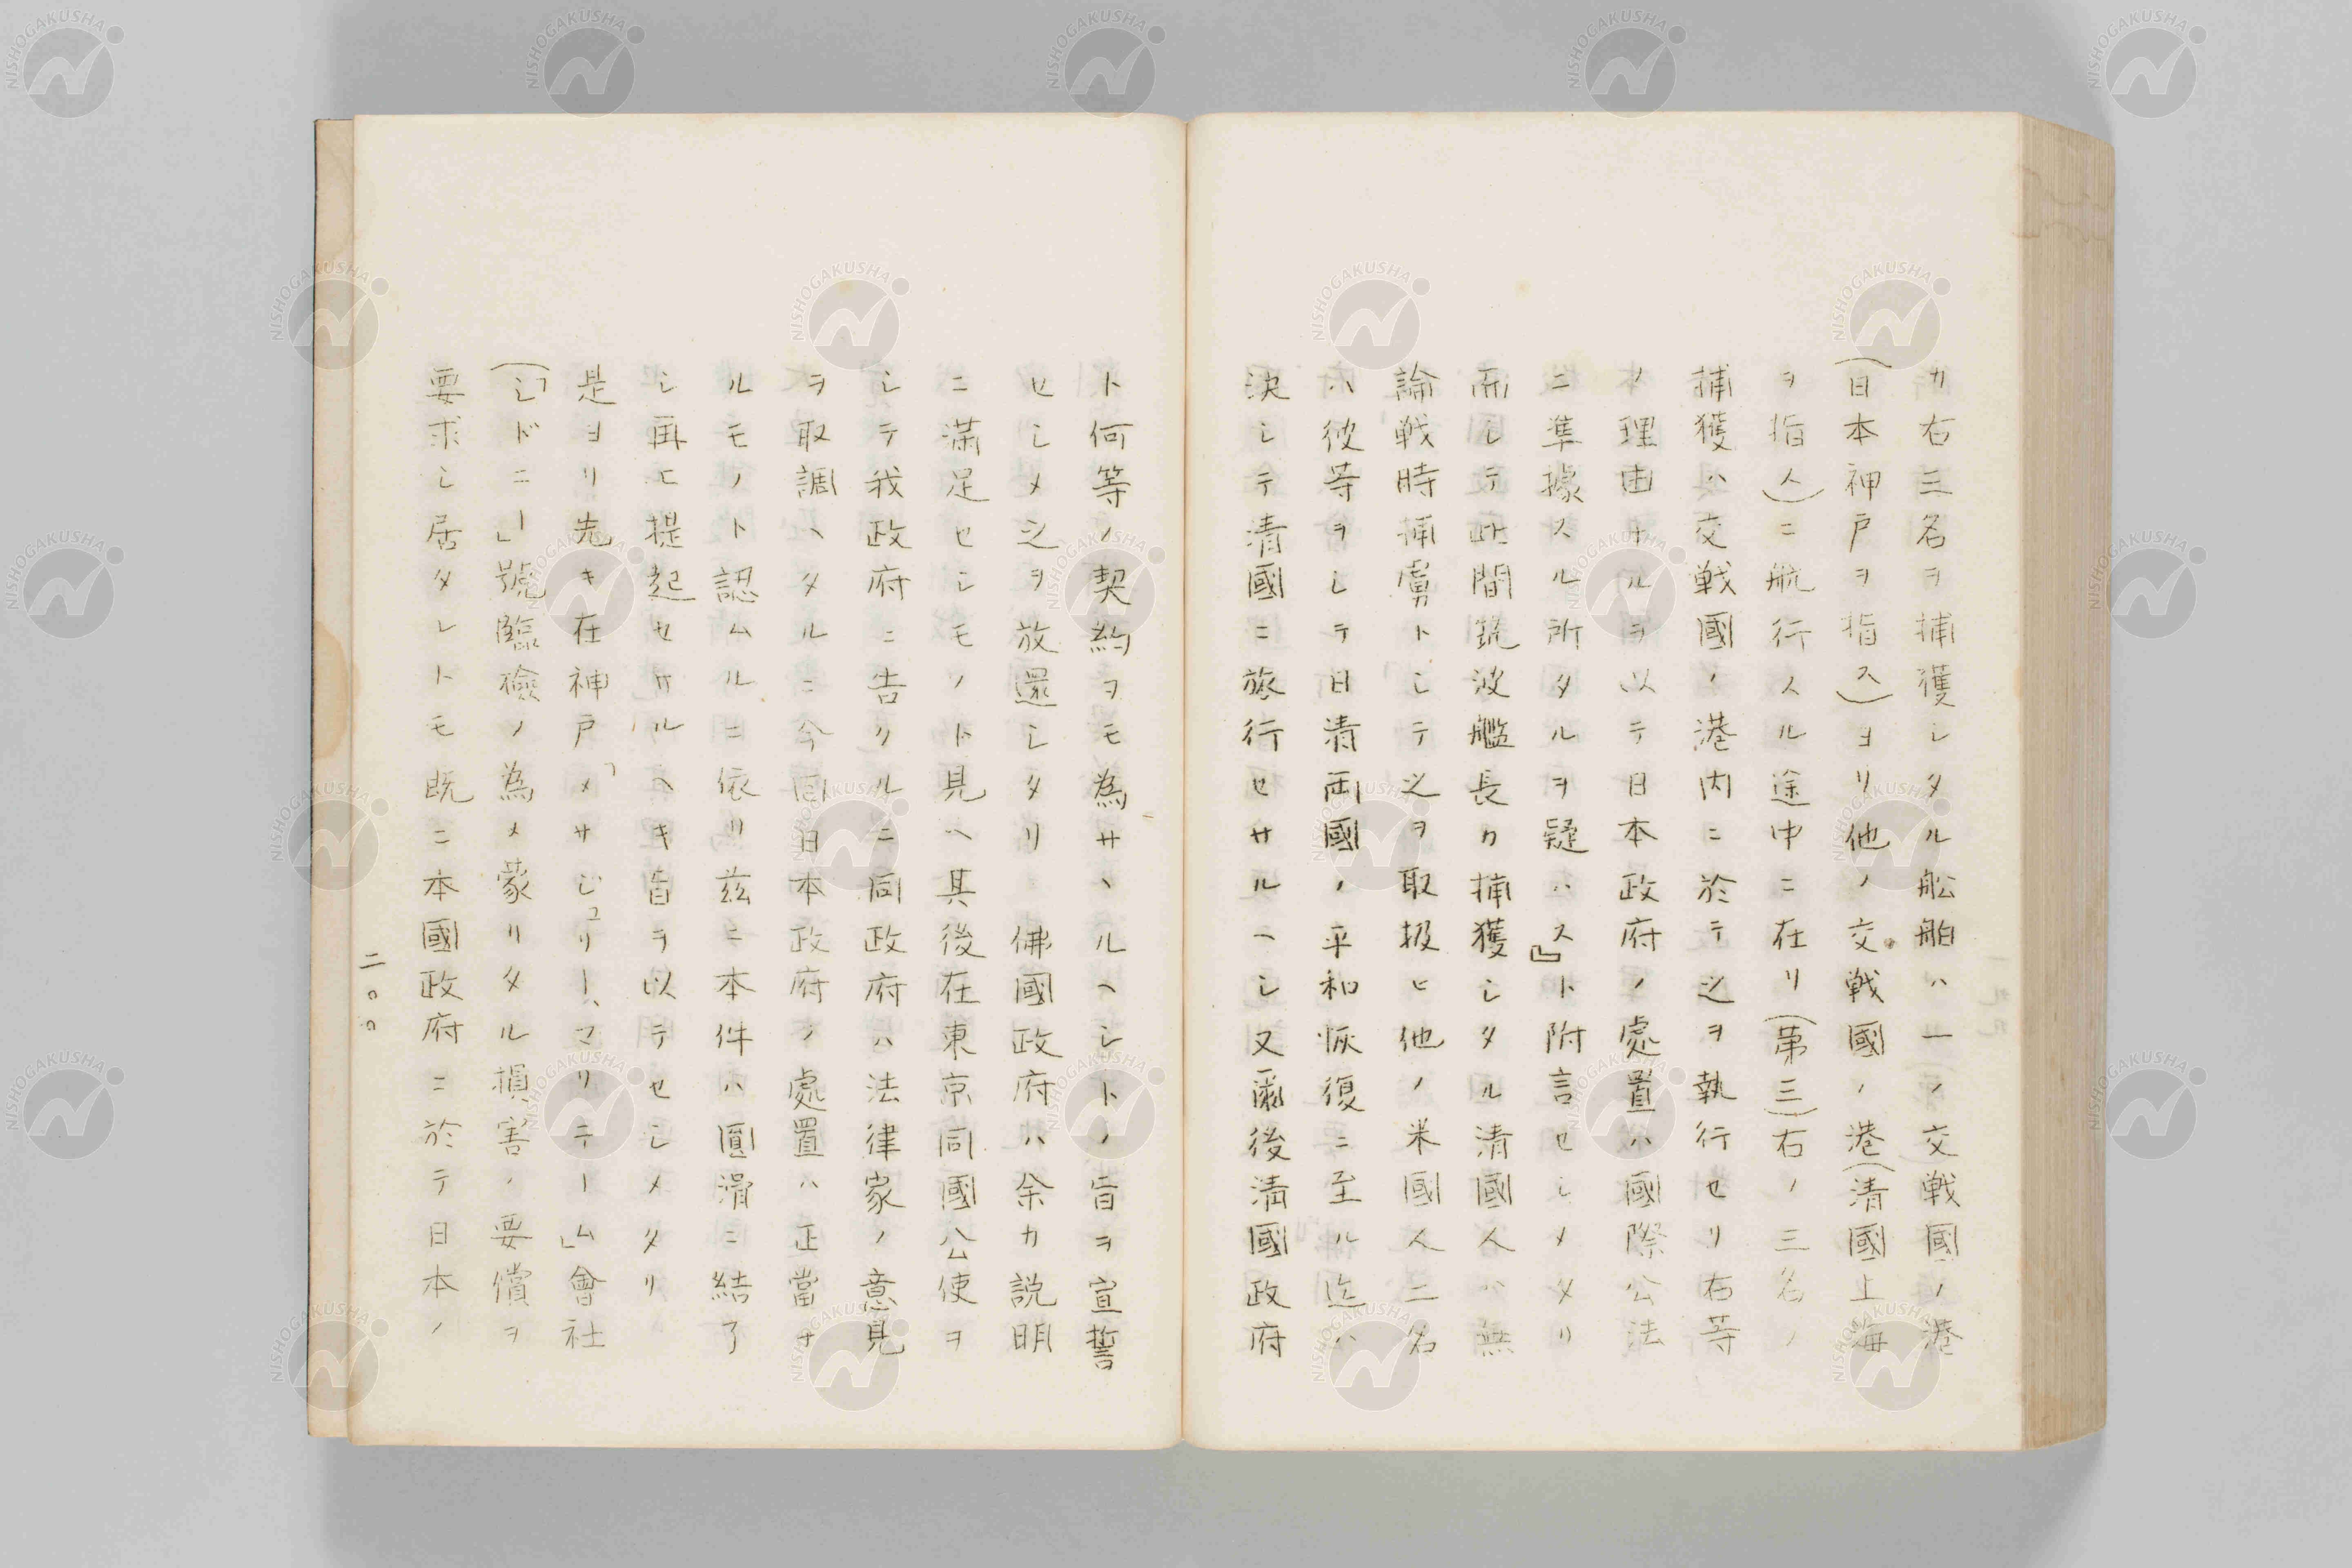 カ右三名ヲ捕獲シタル船舶ハ一ノ交戦國ノ港
(日本神戸ヲ指ス)ヨリ他ノ交戦國ノ港(清國上海
ヲ指ス)ニ航行スル途中ニ在リ(第三)右ノ三名ノ
捕獲ハ交戦國ノ港内ニ於テ之ヲ執行セリ右等
ノ理由ナルヲ以テ日本政府ノ處置ハ國際公法
ニ準據スル所タルヲ疑ハス』ト附言セシメタリ
而シテ此間筑波艦長カ捕獲シタル清國人ハ無
論戦時捕虜トシテ之ヲ取扱ヒ他ノ米國人二名
ハ彼等ヲシテ日清両國ノ平和恢復ニ至ル迄ハ
決シテ清國ニ旅行セサルヘシ又爾後清國政府
ト何等ノ契約ヲモ為サヽルヘシトノ旨ヲ宣誓
セシメ之ヲ放還シタリ佛國政府ハ余カ説明
ニ満足セシモノト見ヘ其後在東京同國公使ヲ
シテ我政府ニ告クルニ同政府ハ法律家ノ意見
ヲ取調ヘタルニ今回日本政府ノ處置ハ正當ナ
ルモノト認ムルニ依リ茲ニ本件ハ圓滑ニ結了
シ再ヒ提起セサルヘキ旨ヲ以テセシメタリ
是ヨリ先キ在神戸「メサジュリー、マリテーム」會社
(「シドニー」號臨檢ノ為メ蒙リタル損害ノ要償ヲ
要求シ居タレトモ既ニ本國政府ニ於テ日本ノ
二〇〇
NISHOGAKUSHA